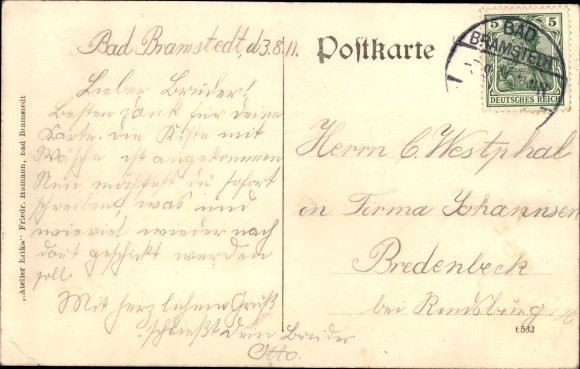 Bad Bramstedt, d 3.8.11.
Postkarte
5 5
DEUTSCHES REICH
BAD
BRAMSTEDT
Lieber Bruder!
Besten Dank für deine
Karte. Die Kiste mit
Wäsche ist angekommen
Nun möchtest du sofort
schreiben, was und
wieviel wieder nach
dort geschickt werden
soll.
Mit herzlichem Gruß
schließt dein Bruder
Otto.
Herrn C. Westphal
in Firma Johannsen
Bredenbeck
bei Rendsburg
t 532
„Atelier Erika" Friedr. Hamann, Bad Bramstedt